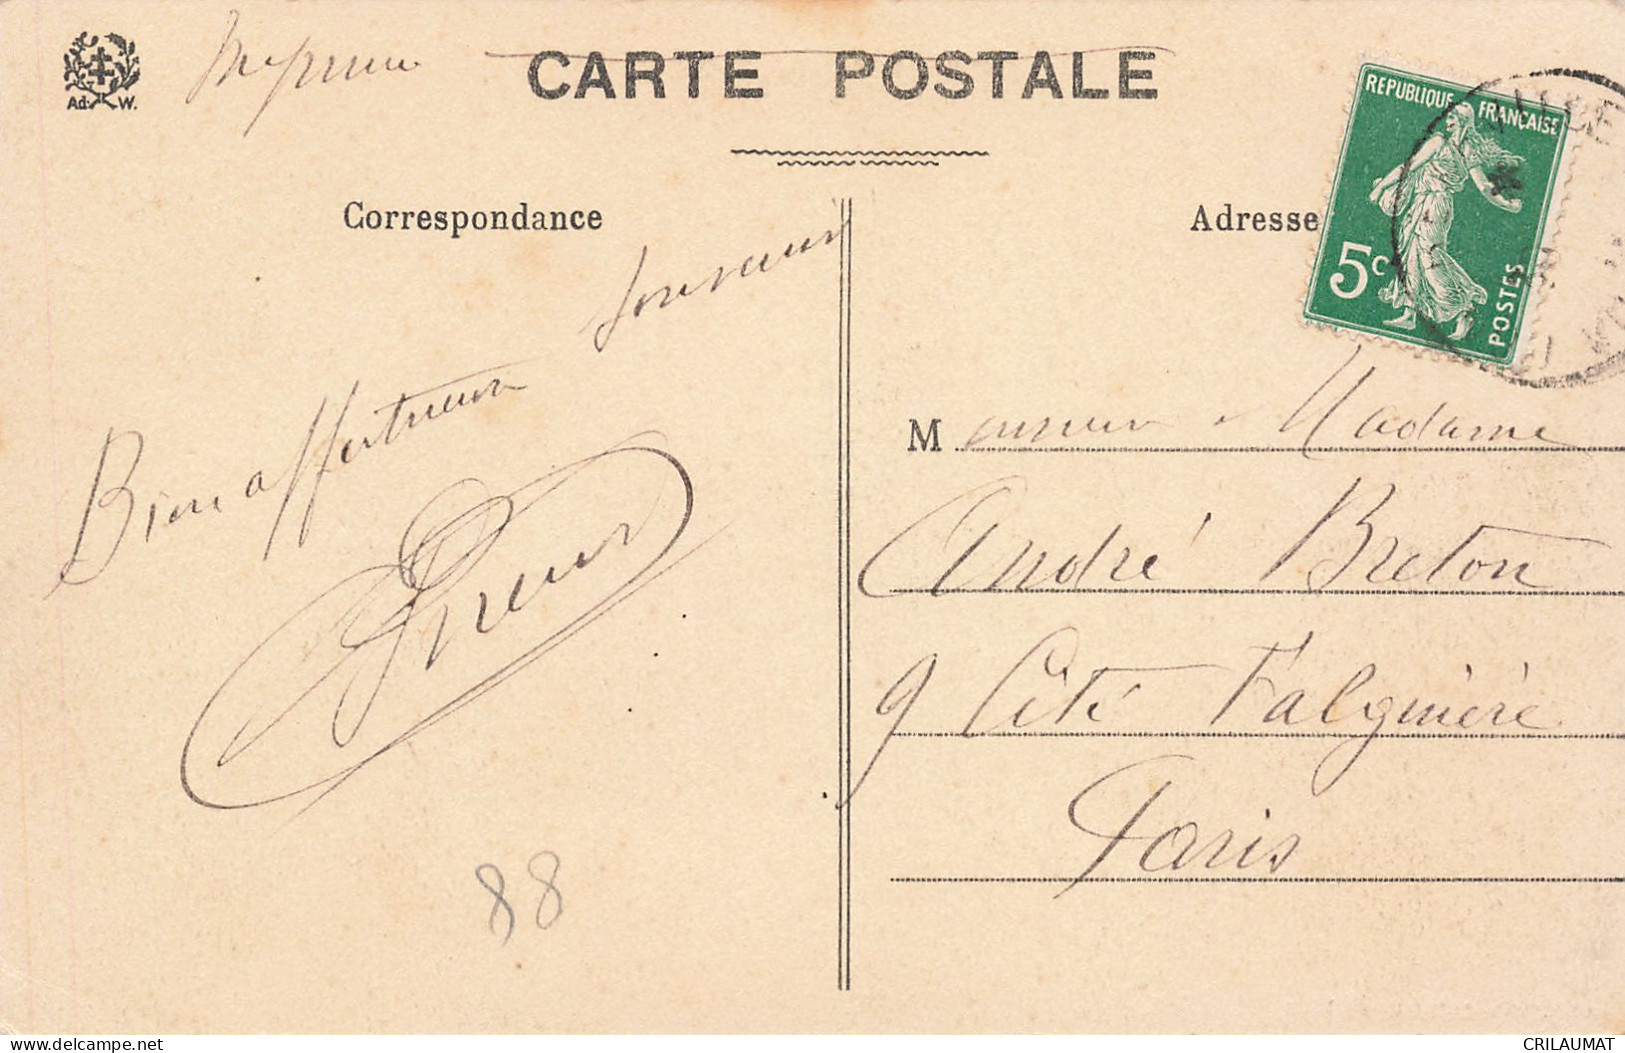 Imprimé CARTE POSTALE
Ad. W.
REPUBLIQUE FRANÇAISE
5c POSTES
Correspondance
Adresse
Bien affectueux souvenir
Monsieur & Madame
André Breton
9 Cité Falguière
Paris
88
delcampe.net
CRILAUMAT